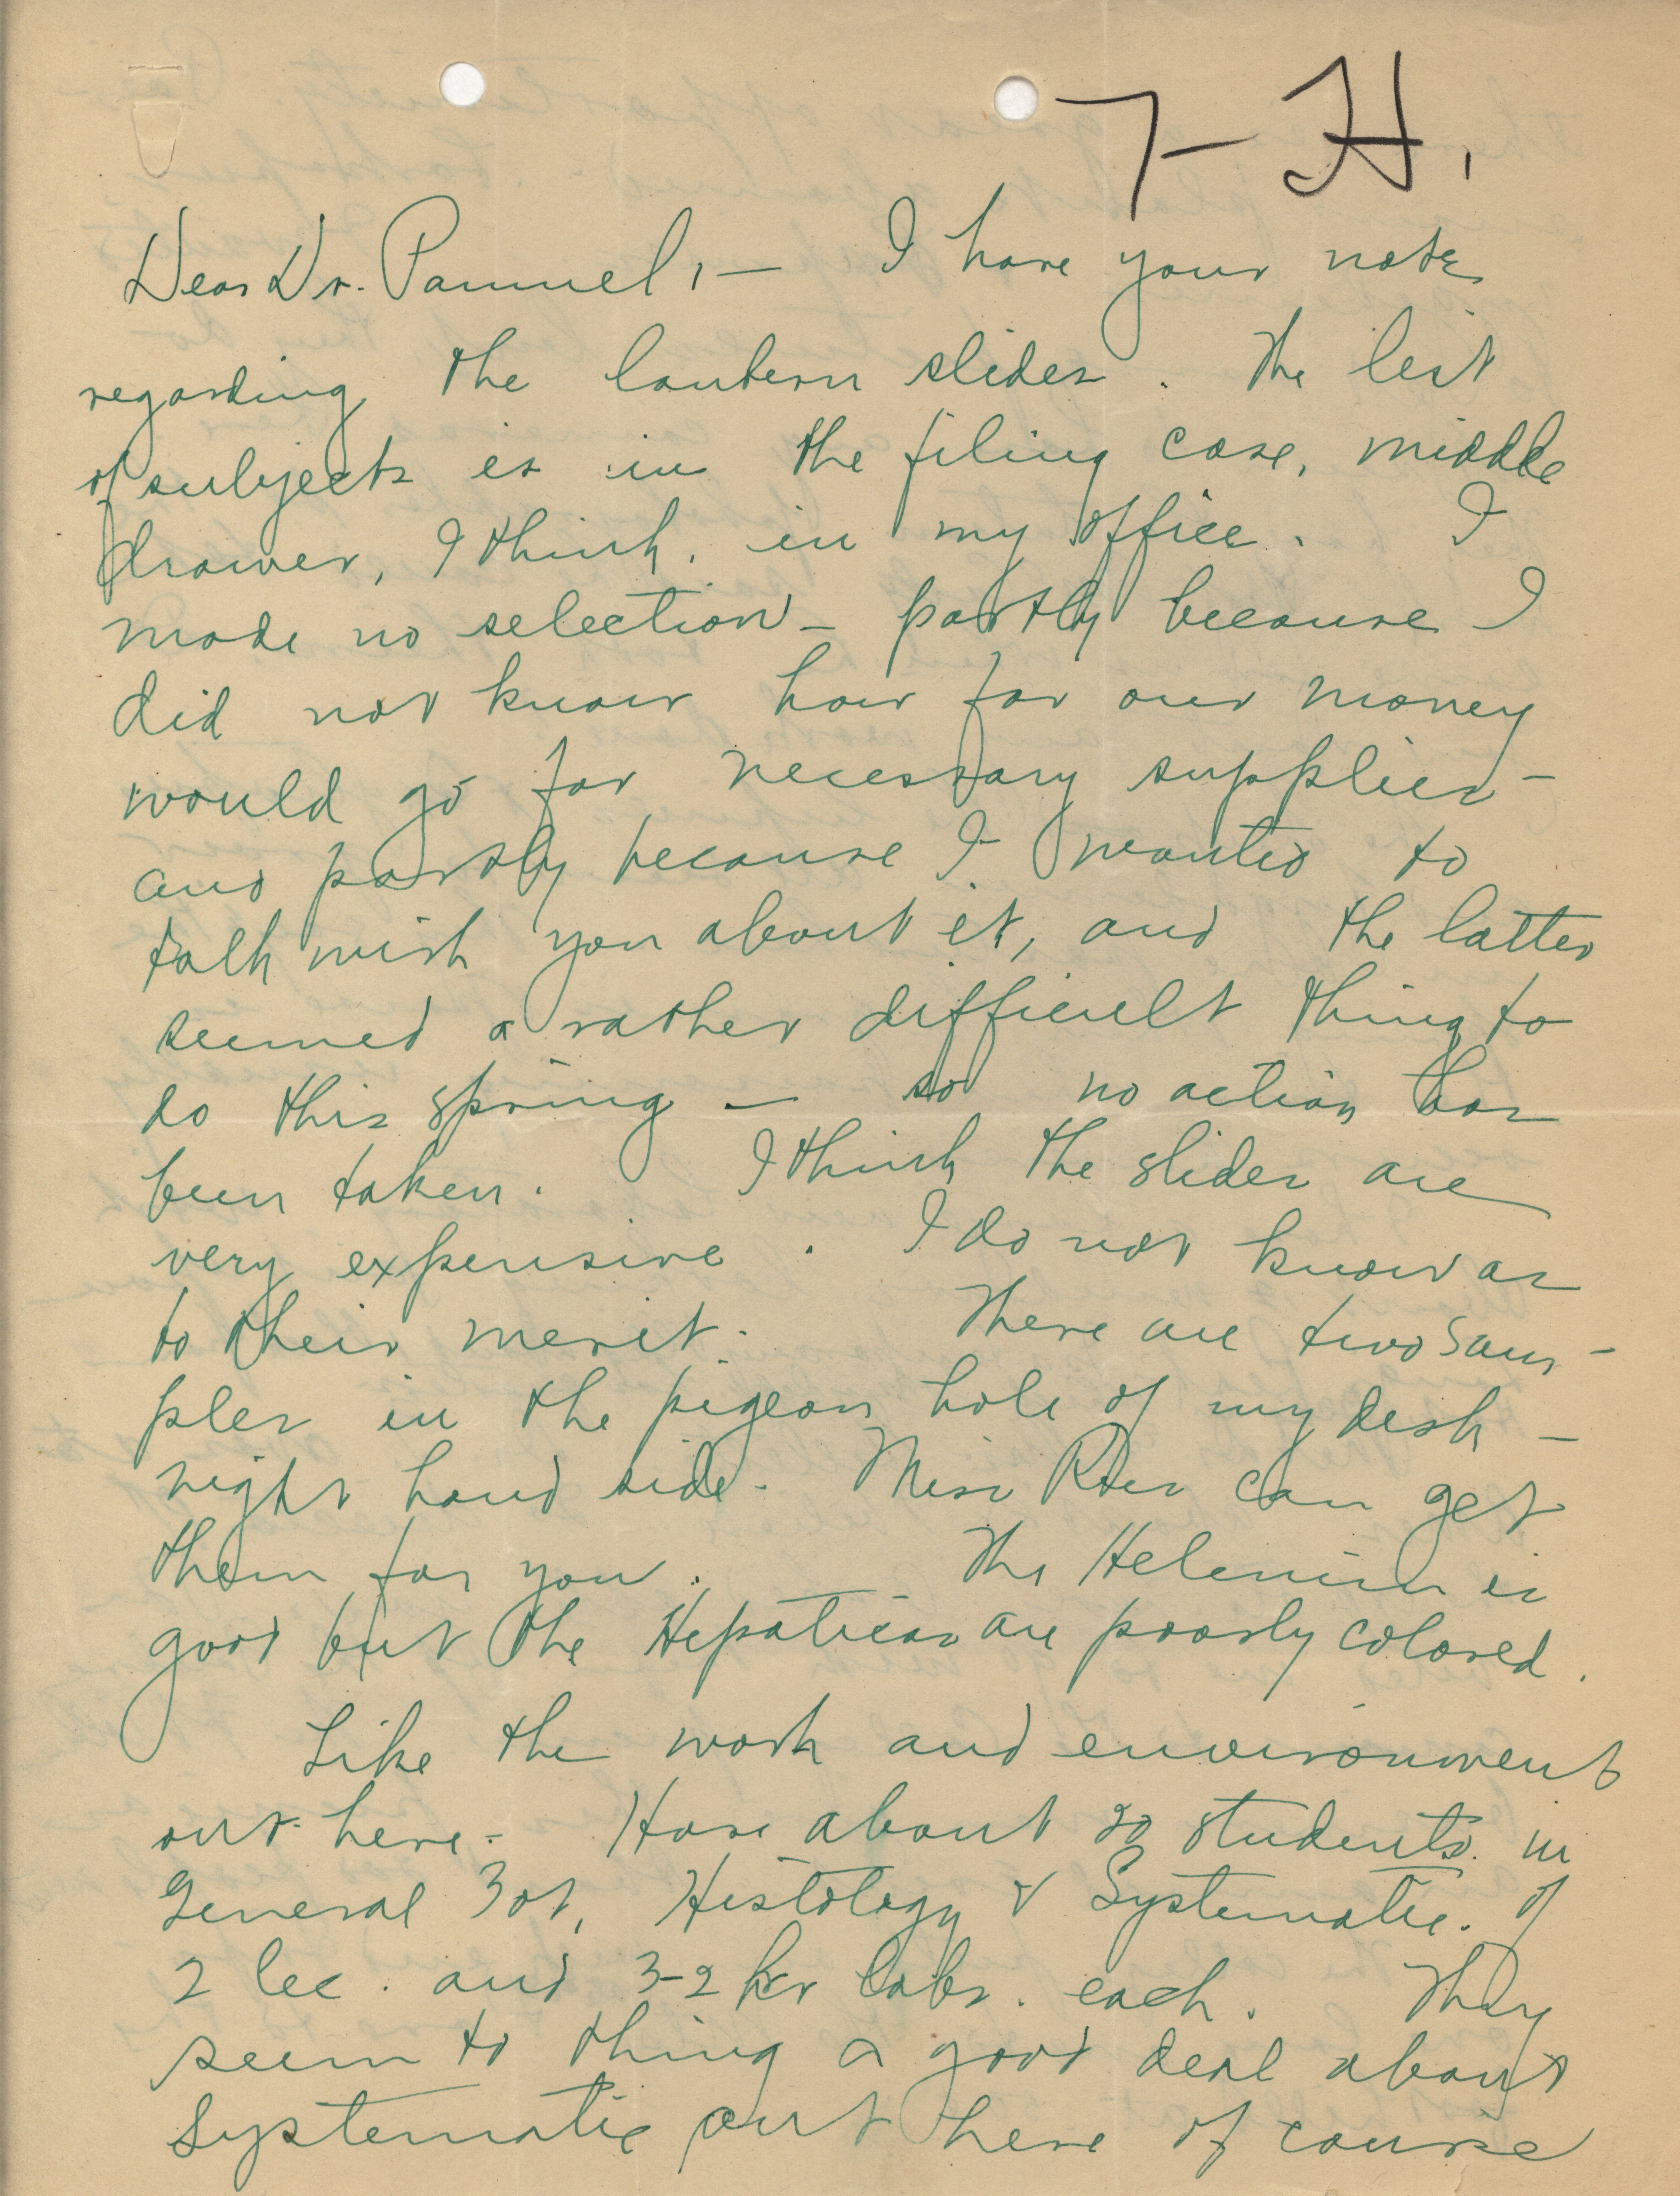 7-H.
Dear Dr. Pammel, — I have your note
regarding the lantern slides. The list
of subjects is in the filing case, middle
drawer, I think, in my office. I
made no selection - partly because I
did not know how far our money
would go for necessary supplies -
and partly because I wanted to
talk with you about it, and the latter
seemed a rather difficult thing to
do this spring — so no action has
been taken. I think the slides are
very expensive. I do not know as
to their merit. There are two sam-
ples in the pigeon hole of my desk -
right hand side. Miss can get
them for you. The Helenium is
good but the Hepaticas are poorly colored.
Like the work and environment
out here. Have about 20 students in
General Bot, Histology & Systematic. of
2 lec. and 3-2 hr labs. each. They
seem to thing a good deal about
Systematic out here of course